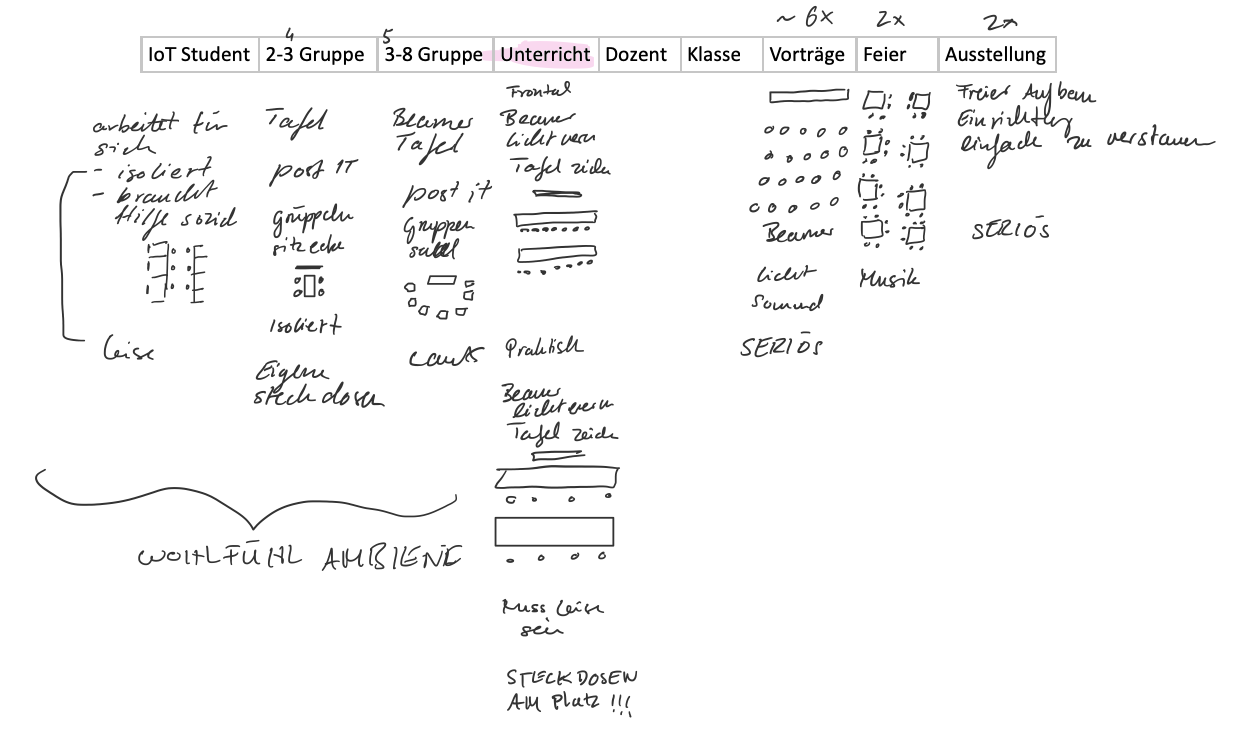 ~ 6x 2x 2x
4 5
IoT Student 2-3 Gruppe 3-8 Gruppe Unterricht Dozent Klasse Vorträge Feier Ausstellung
arbeitet für
sich
- isoliert
- braucht
Hilfe sozial
leise
Tafel
post IT
grüppchen
sitzecke
Isoliert
Eigene
steckdosen
Beamer
Tafel
post it
Gruppen
Lauts
WOHLFÜHL AMBIENE
Frontal
Beamer
Licht vern
Tafel zeich
Praktisch
Beamer
licht vern
Tafel zeich
Muss Leise
sein
STECKDOSEN
AM Platz !!!
Beamer
licht
Sound
SERIÖS
Musik
Freier Aufbau
Einrichtung
einfach zu verstauen
SERIÖS